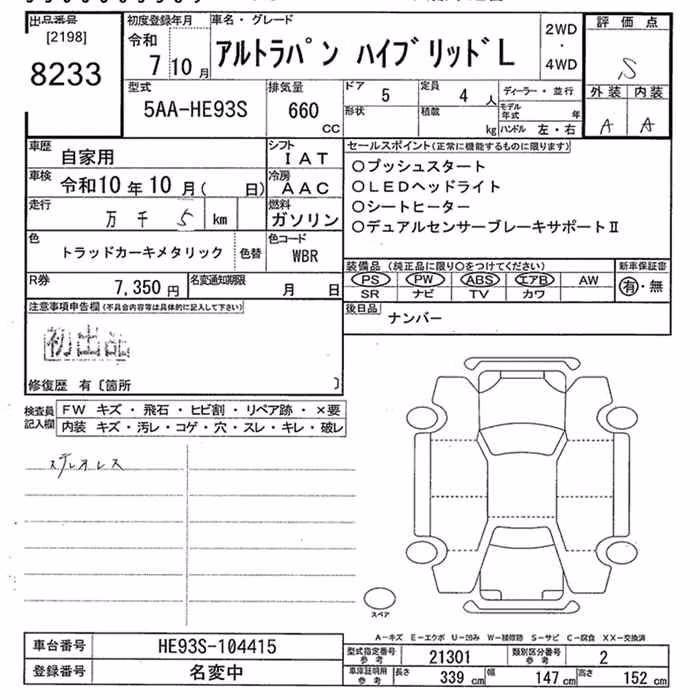 出品番号 初度登録年月 車名・グレード 2WD 評価点
[2198] 令和 アルトラパン ハイブリッドL ・
8233 7 10 月 4WD S
型式 排気量 ドア 5 定員 4 人 ディーラー・並行 外装 内装
5AA-HE93S 660 cc 形状 積載 kg モデル年式 年 A A
ハンドル 左・右
車歴 自家用 シフト IAT セールスポイント(正常に機能するものに限ります)
車検 令和10年10月( 日) 冷房 AAC ○プッシュスタート
○LEDヘッドライト
走行 万 千 5 km 燃料 ガソリン ○シートヒーター
○デュアルセンサーブレーキサポートⅡ
色 トラッドカーキメタリック 色替 色コード WBR
装備品(純正品に限り○をつけてください) 新車保証書
R券 7,350 円 名変通知期限 月 日 PS PW ABS エアB AW 有・無
SR ナビ TV カワ
注意事項申告欄(不具合内容等は具体的に記入して下さい) 後日品 ナンバー
初出品
修復歴 有〔箇所 〕
検査員記入欄 FW キズ・飛石・ヒビ割・リペア跡・×要
内装 キズ・汚レ・コゲ・穴・スレ・キレ・破レ
ステレオレス
スペア
A-キズ E-エクボ U-凹み W-補修跡 S-サビ C-腐食 XX-交換済
車台番号 HE93S-104415 型式指定番号 参考 21301 類別区分番号 参考 2
登録番号 名変中 車庫証明用 参考 長さ 339 cm 幅 147 cm 高さ 152 cm